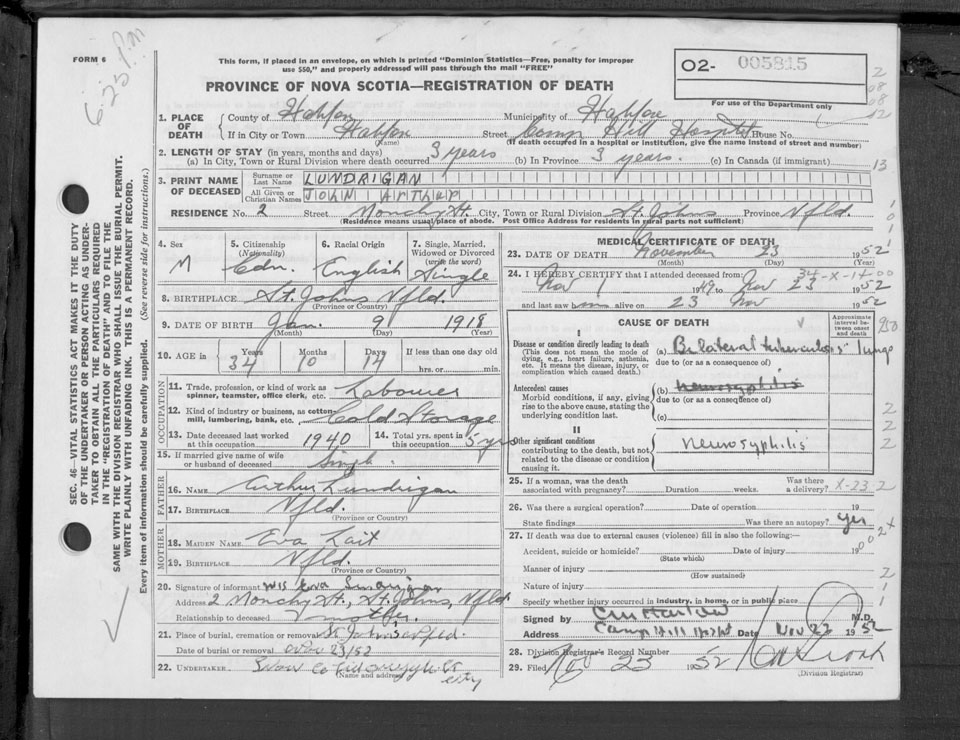 6.23 P.M
FORM 6
This form, if placed in an envelope, on which is printed "Dominion Statistics—Free, penalty for improper
use 550," and properly addressed will pass through the mail "FREE"
PROVINCE OF NOVA SCOTIA—REGISTRATION OF DEATH
O2- 005815
For use of the Department only
1. PLACE OF DEATH
County of Halifax Municipality of Halifax
If in City or Town Halifax Street Camp Hill Hospital House No.
(Name) (If death occurred in a hospital or institution, give the name instead of street and number)
2. LENGTH OF STAY (in years, months and days)
(a) In City, Town or Rural Division where death occurred 3 years (b) In Province 3 years. (c) In Canada (if immigrant)
3. PRINT NAME OF DECEASED
Surname or Last Name LUNDRIGAN
All Given or Christian Names JOHN ARTHUR
RESIDENCE No. 2 Street Monchy St. City, Town or Rural Division St. Johns Province Nfld.
(Residence means usual place of abode. Post Office Address for Residents in rural parts not sufficient)
4. Sex M
5. Citizenship (Nationality) Cdn.
6. Racial Origin English
7. Single, Married, Widowed or Divorced (write the word) Single
8. BIRTHPLACE St. Johns Nfld.
(Province or Country)
9. DATE OF BIRTH Jan. 9 1918
(Month) (Day) (Year)
10. AGE in Years 34 Months 10 Days 14 If less than one day old
hrs. or min.
OCCUPATION
11. Trade, profession, or kind of work as spinner, teamster, office clerk, etc. Labourer
12. Kind of industry or business, as cotton-mill, lumbering, bank, etc. Cold Storage
13. Date deceased last worked at this occupation 1940
14. Total yrs. spent in this occupation 5 yrs
15. If married give name of wife or husband of deceased Single
FATHER
16. NAME Arthur Lundrigan
17. BIRTHPLACE Nfld.
(Province or Country)
MOTHER
18. MAIDEN NAME Eva Tait
19. BIRTHPLACE Nfld.
(Province or Country)
20. Signature of informant Mrs Eva Lundrigan
Address 2 Monchy St., St. Johns, Nfld
Relationship to deceased mother
21. Place of burial, cremation or removal St John's Nfld.
Date of burial or removal Nov 23/52
22. UNDERTAKER Snow Co Ltd Argyle St
(Name and address) City
MEDICAL CERTIFICATE OF DEATH
23. DATE OF DEATH November 23 1952
(Month) (Day) (Year)
34-X-1400
24. I HEREBY CERTIFY that I attended deceased from:
Nov 1 1949 Nov 23 1952
and last saw him alive on 23 Nov 1952
CAUSE OF DEATH
Approximate interval between onset and death
I
Disease or condition directly leading to death
(This does not mean the mode of dying, e.g., heart failure, asthenia, etc. It means the disease, injury, or complication which caused death.)
(a) Bilateral tuberculosis lungs
due to (or as a consequence of)
Antecedent causes
Morbid conditions, if any, giving rise to the above cause, stating the underlying condition last.
(b) neurosyphilis
due to (or as a consequence of)
(c)
II
Other significant conditions
contributing to the death, but not related to the disease or condition causing it.
Neurosyphilis
25. If a woman, was the death associated with pregnancy? Duration weeks. Was there a delivery?
X-23.2
26. Was there a surgical operation? Date of operation 19
State findings Was there an autopsy? yes
27. If death was due to external causes (violence) fill in also the following:—
Accident, suicide or homicide? Date of injury 19
(State which)
Manner of injury
(How sustained)
Nature of injury
Specify whether injury occurred in industry, in home, or in public place
Signed by M.D.
Address Camp Hill Hosp Date Nov 23 1952
28. Division Registrar's Record Number
29. Filed Nov 23 1952
(Division Registrar)
SEC. 46—VITAL STATISTICS ACT MAKES IT THE DUTY
OF THE UNDERTAKER OR PERSON ACTING AS UNDER-
TAKER TO OBTAIN ALL THE PARTICULARS REQUIRED
IN THE "REGISTRATION OF DEATH" AND TO FILE THE
SAME WITH THE DIVISION REGISTRAR WHO SHALL ISSUE THE BURIAL PERMIT.
WRITE PLAINLY WITH UNFADING INK. THIS IS A PERMANENT RECORD.
Every item of information should be carefully supplied. (See reverse side for instructions.)